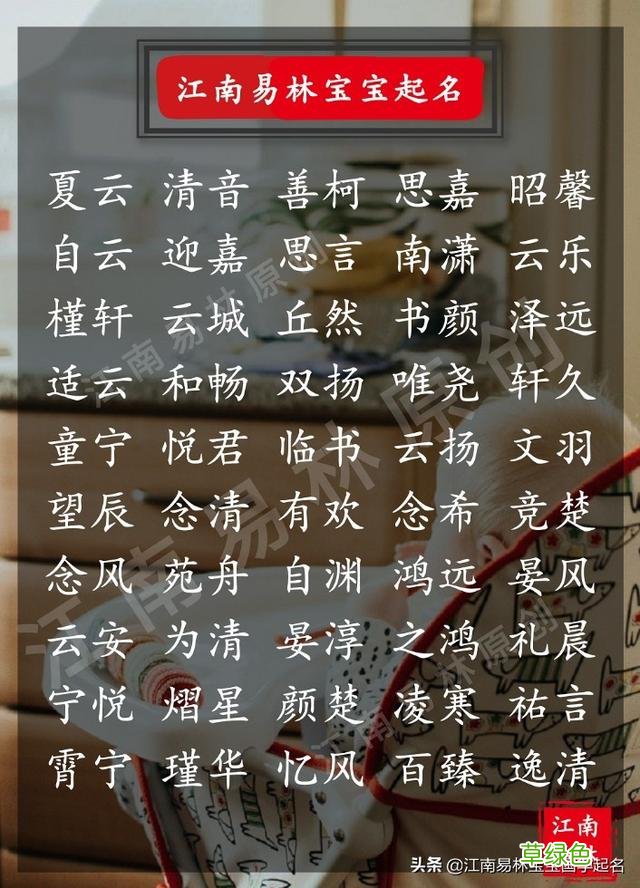 江南易林宝宝起名
夏云 清音 善柯 思嘉 昭馨
自云 迎嘉 思言 南潇 云乐
槿轩 云城 丘然 书颜 泽远
适云 和畅 双扬 唯尧 轩久
童宁 悦君 临书 云扬 文羽
望辰 念清 有欢 念希 竞楚
念风 苑舟 自渊 鸿远 晏风
云安 为清 晏淳 之鸿 礼晨
宁悦 熠星 颜楚 凌寒 祐言
霄宁 瑾华 忆风 百臻 逸清
江南易林原创
江南易林原创
江南易林原创
江南
草绿色
头条 @江南易林宝宝国学起名